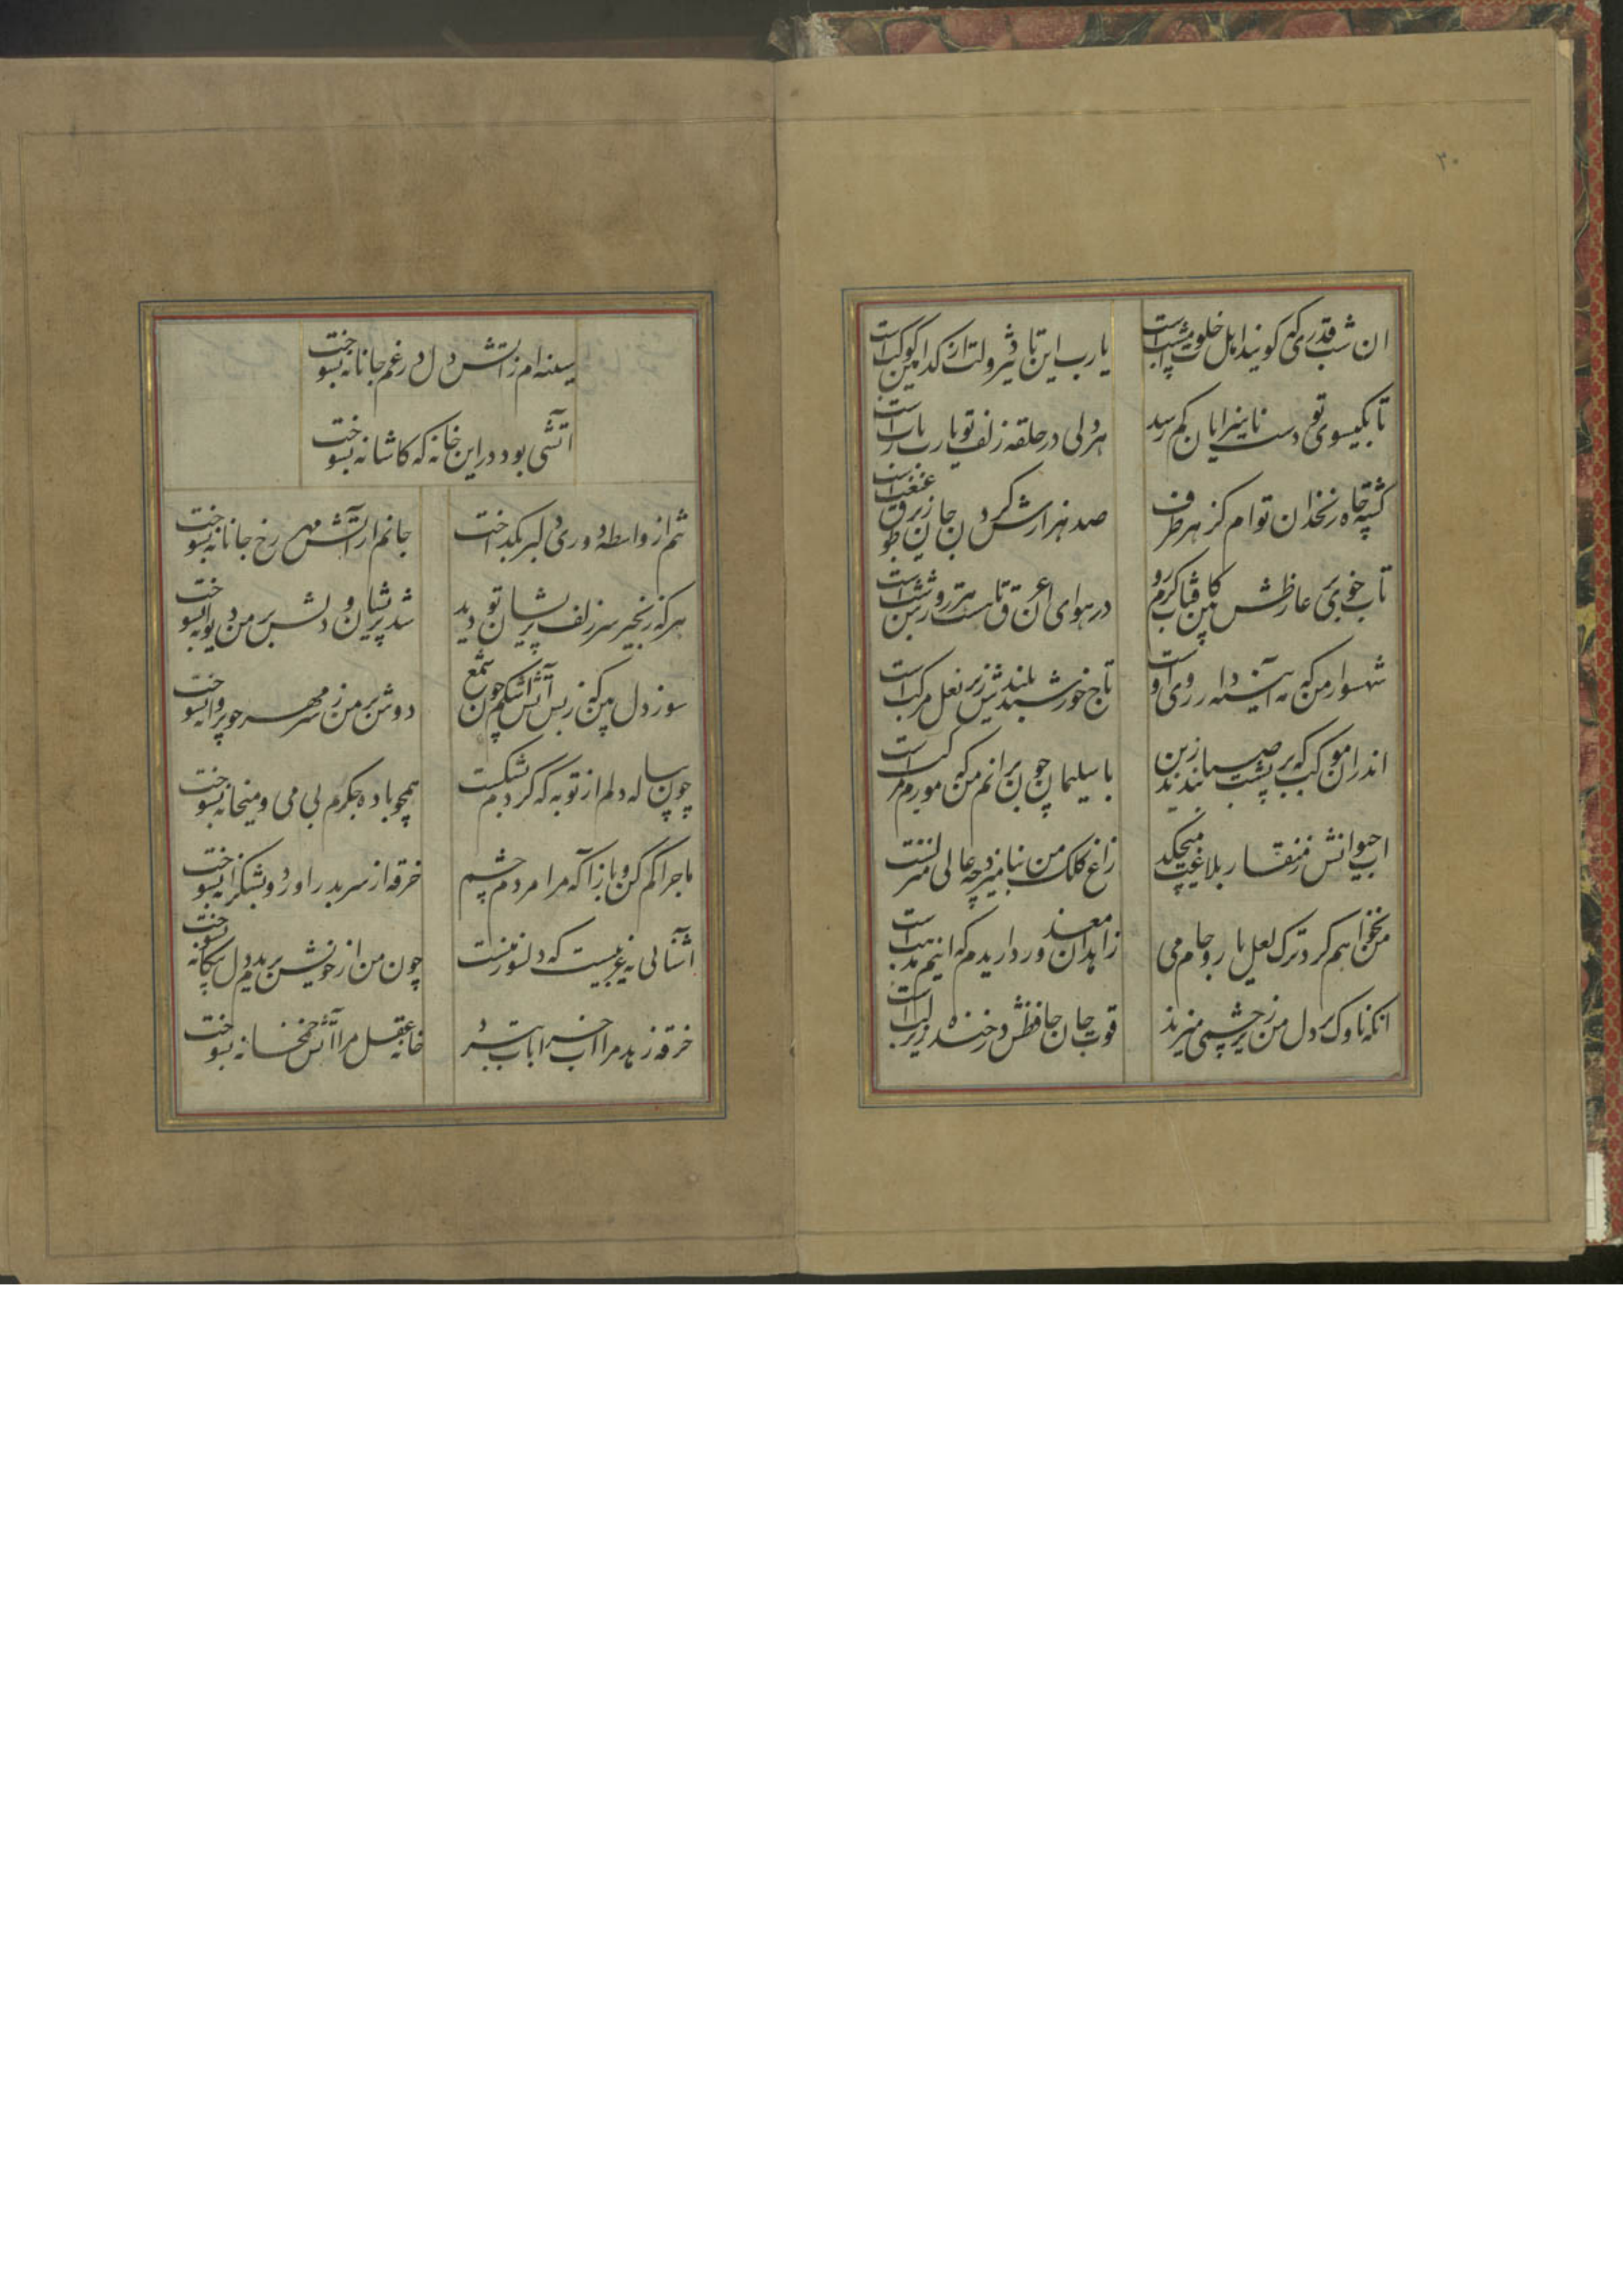 ۳۰
ان شب قدری که کویند اهل خلوت امشبست
یا رب این تاثیر دولت از کدامین کوکب است
تا بگیسوی تو دست ناسزایان کم رسد
هر دلی در حلقه زلف تو یا رب یا رب است
کشته چاه زنخدان توام کز هر طرف
صد هزارش کردن جان زیر طوق غبغب است
تاب خوی بر عارضش بین کافتاب کرم رو
در هوای ان عرق تا هست هر روزش تب است
شهسوار من که مه آیینه دار روی اوست
تاج خورشید بلندش زیر نعل مرکب است
اندران موکب که بر پشت صبا بندند زین
با سلیمان چون برانم من که مورم مرکب است
اب حیوانش ز منقار بلاغت میچکد
زاغ کلک من بنامیزد چه عالی مشربست
من نخواهم کرد ترک لعل یار و جام می
زاهدان معذور داریدم که اینم مذهب است
انکه ناوک بر دل من زیر چشمی میزند
قوت جان حافظش در خنده زیر لب است
سینه ام ز اتش دل در غم جانانه بسوخت
اتشی بود در این خانه که کاشانه بسوخت
تنم از واسطه دوری دلبر بکداخت
جانم از آتش مهر رخ جانانه بسوخت
هر که زنجیر سر زلف پریشان تو دید
شد پریشان و دلش بر من دیوانه بسوخت
سوز دل بین که ز بس آتش اشکم چون شمع
دوش بر من ز سر مهر چو پروانه بسوخت
چون پیاله دلم از توبه که کردم بشکست
همچو باده جکرم بی می و میخانه بسوخت
ماجرا کم کن و باز آ که مرا مردم چشم
خرقه از سر بدر اورد و بشکرانه بسوخت
آشنائی نه غریبست که دلسوز منست
چون من از خویش بریدم دل بیکانه بسوخت
خرقه زهد مرا اب خرابات ببرد
خانه عقل مرا آتش خمخانه بسوخت